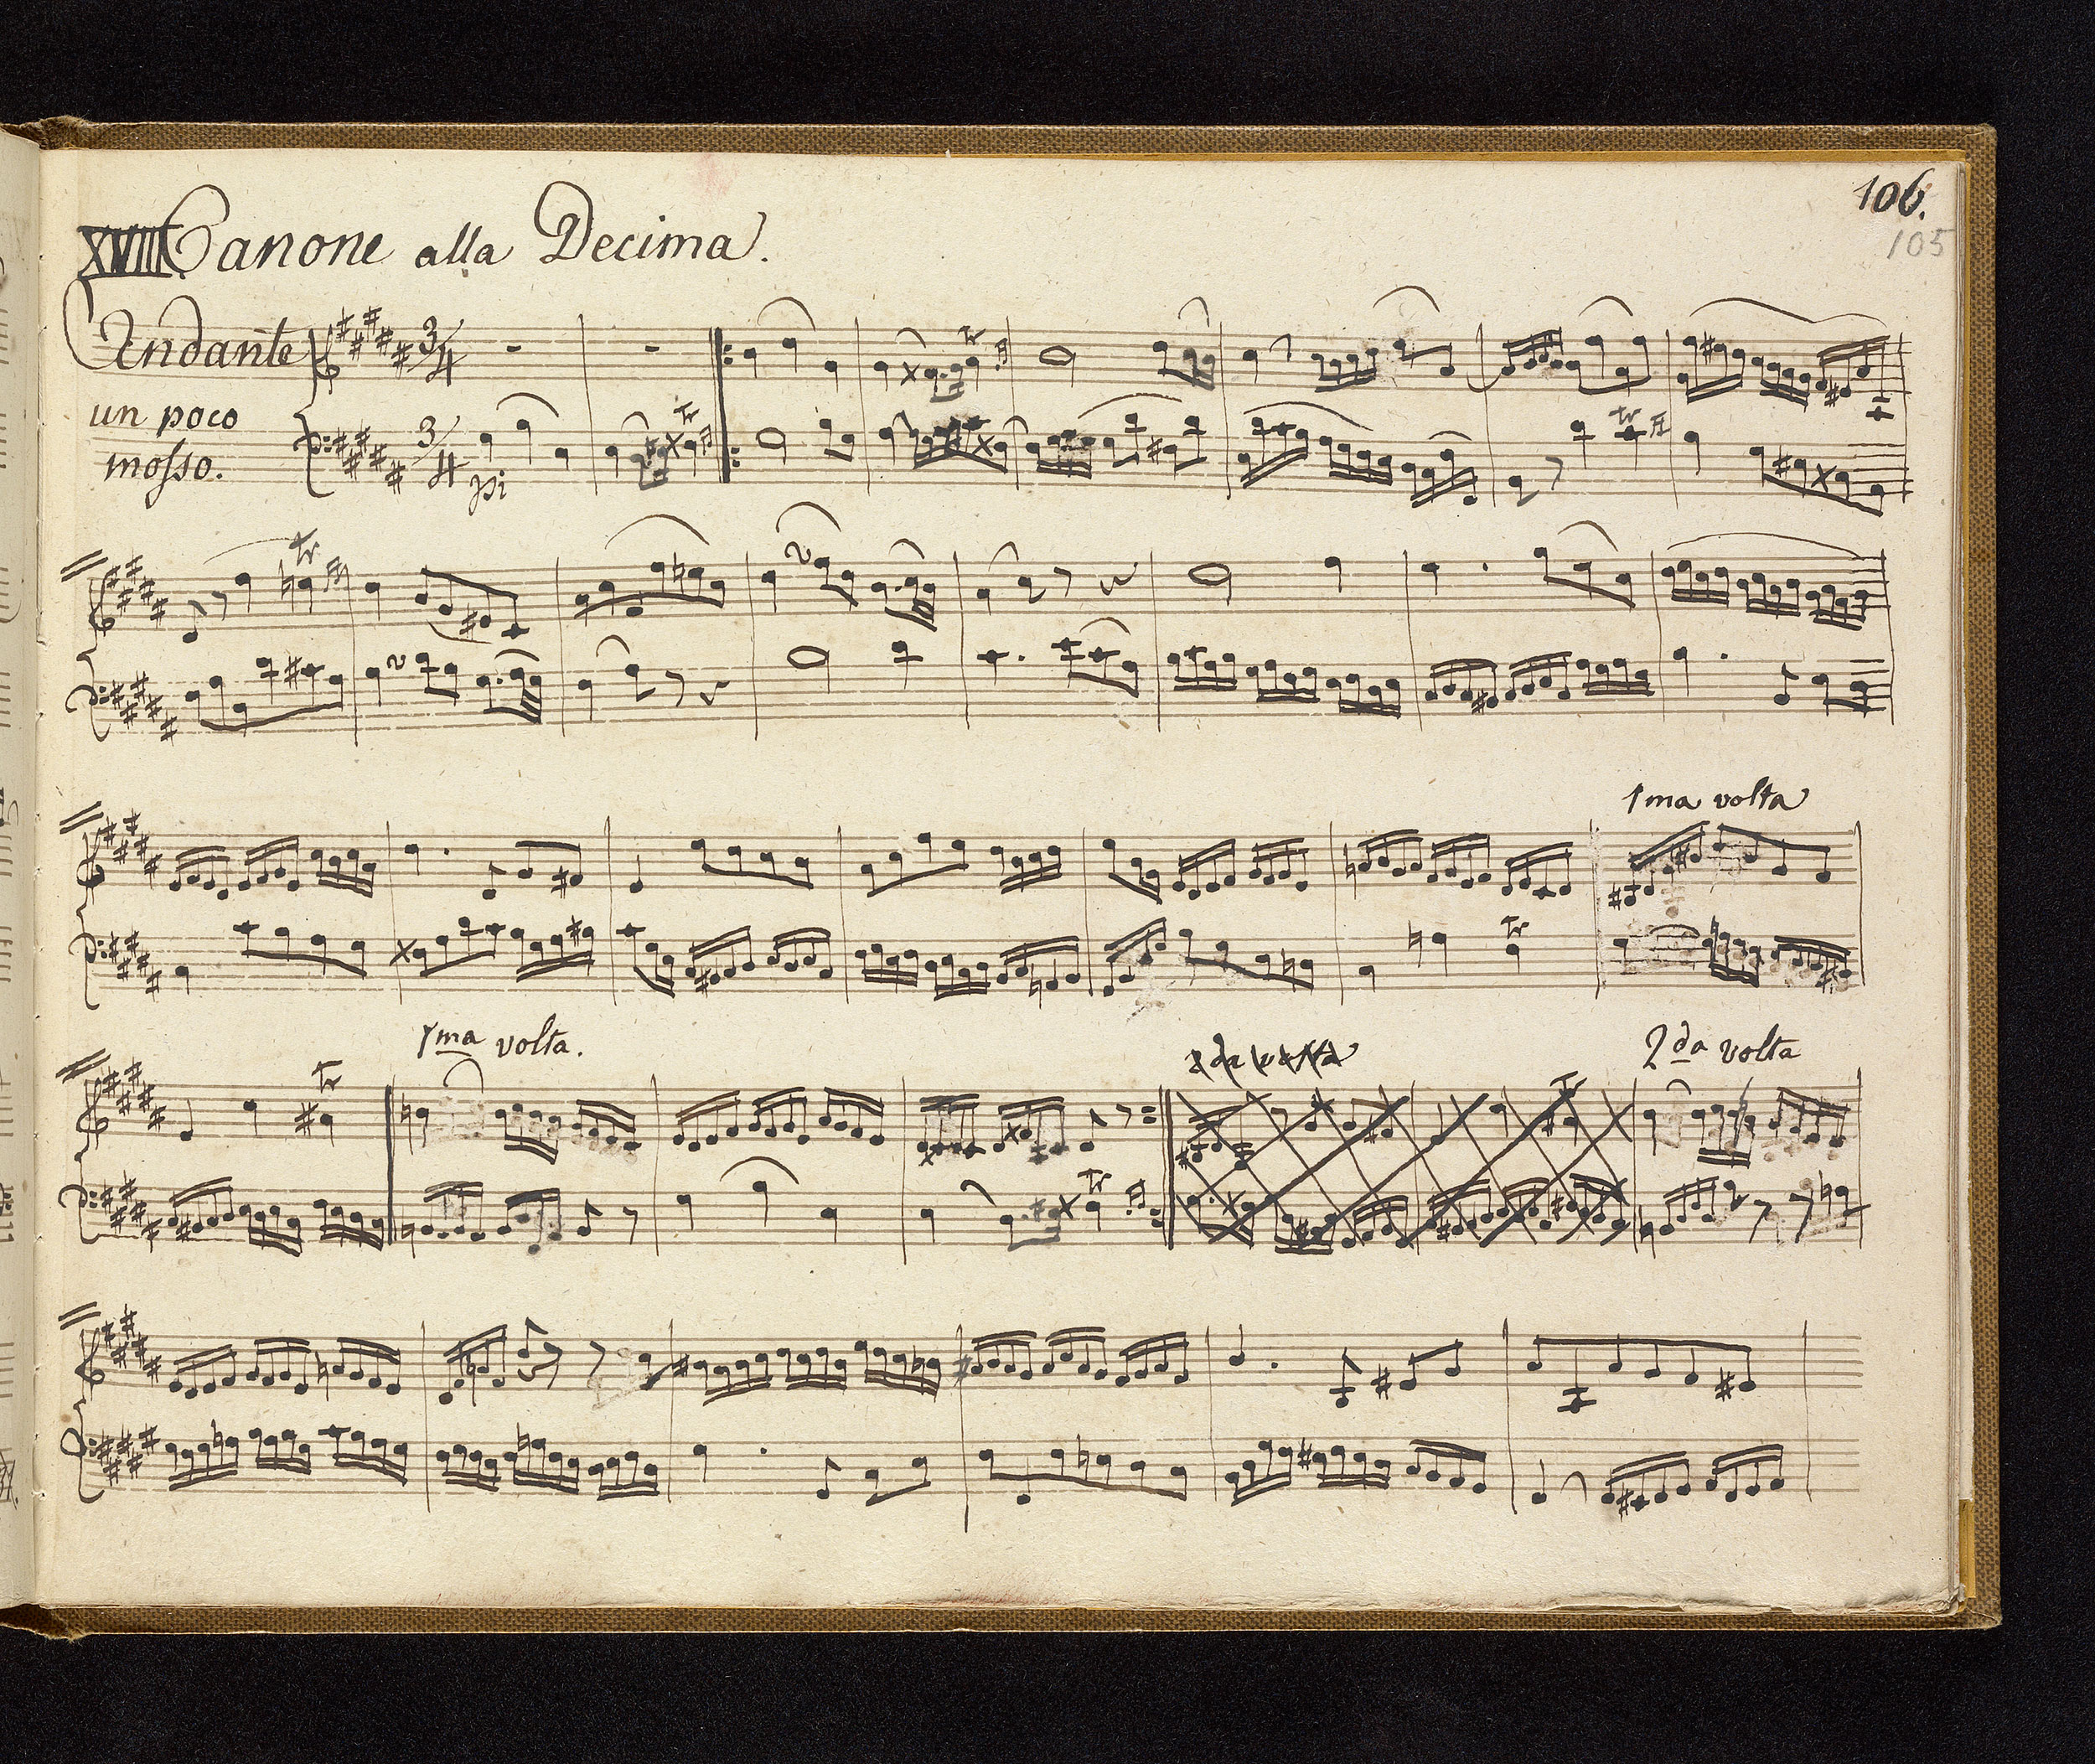 106.
105
XVIII. Canone alla Decima.
Andante
un poco
mosso.
3/4
tr
3/4
pi
tr
tr
tr
1ma volta
tr
tr
1ma volta.
2da volta
2da volta
tr